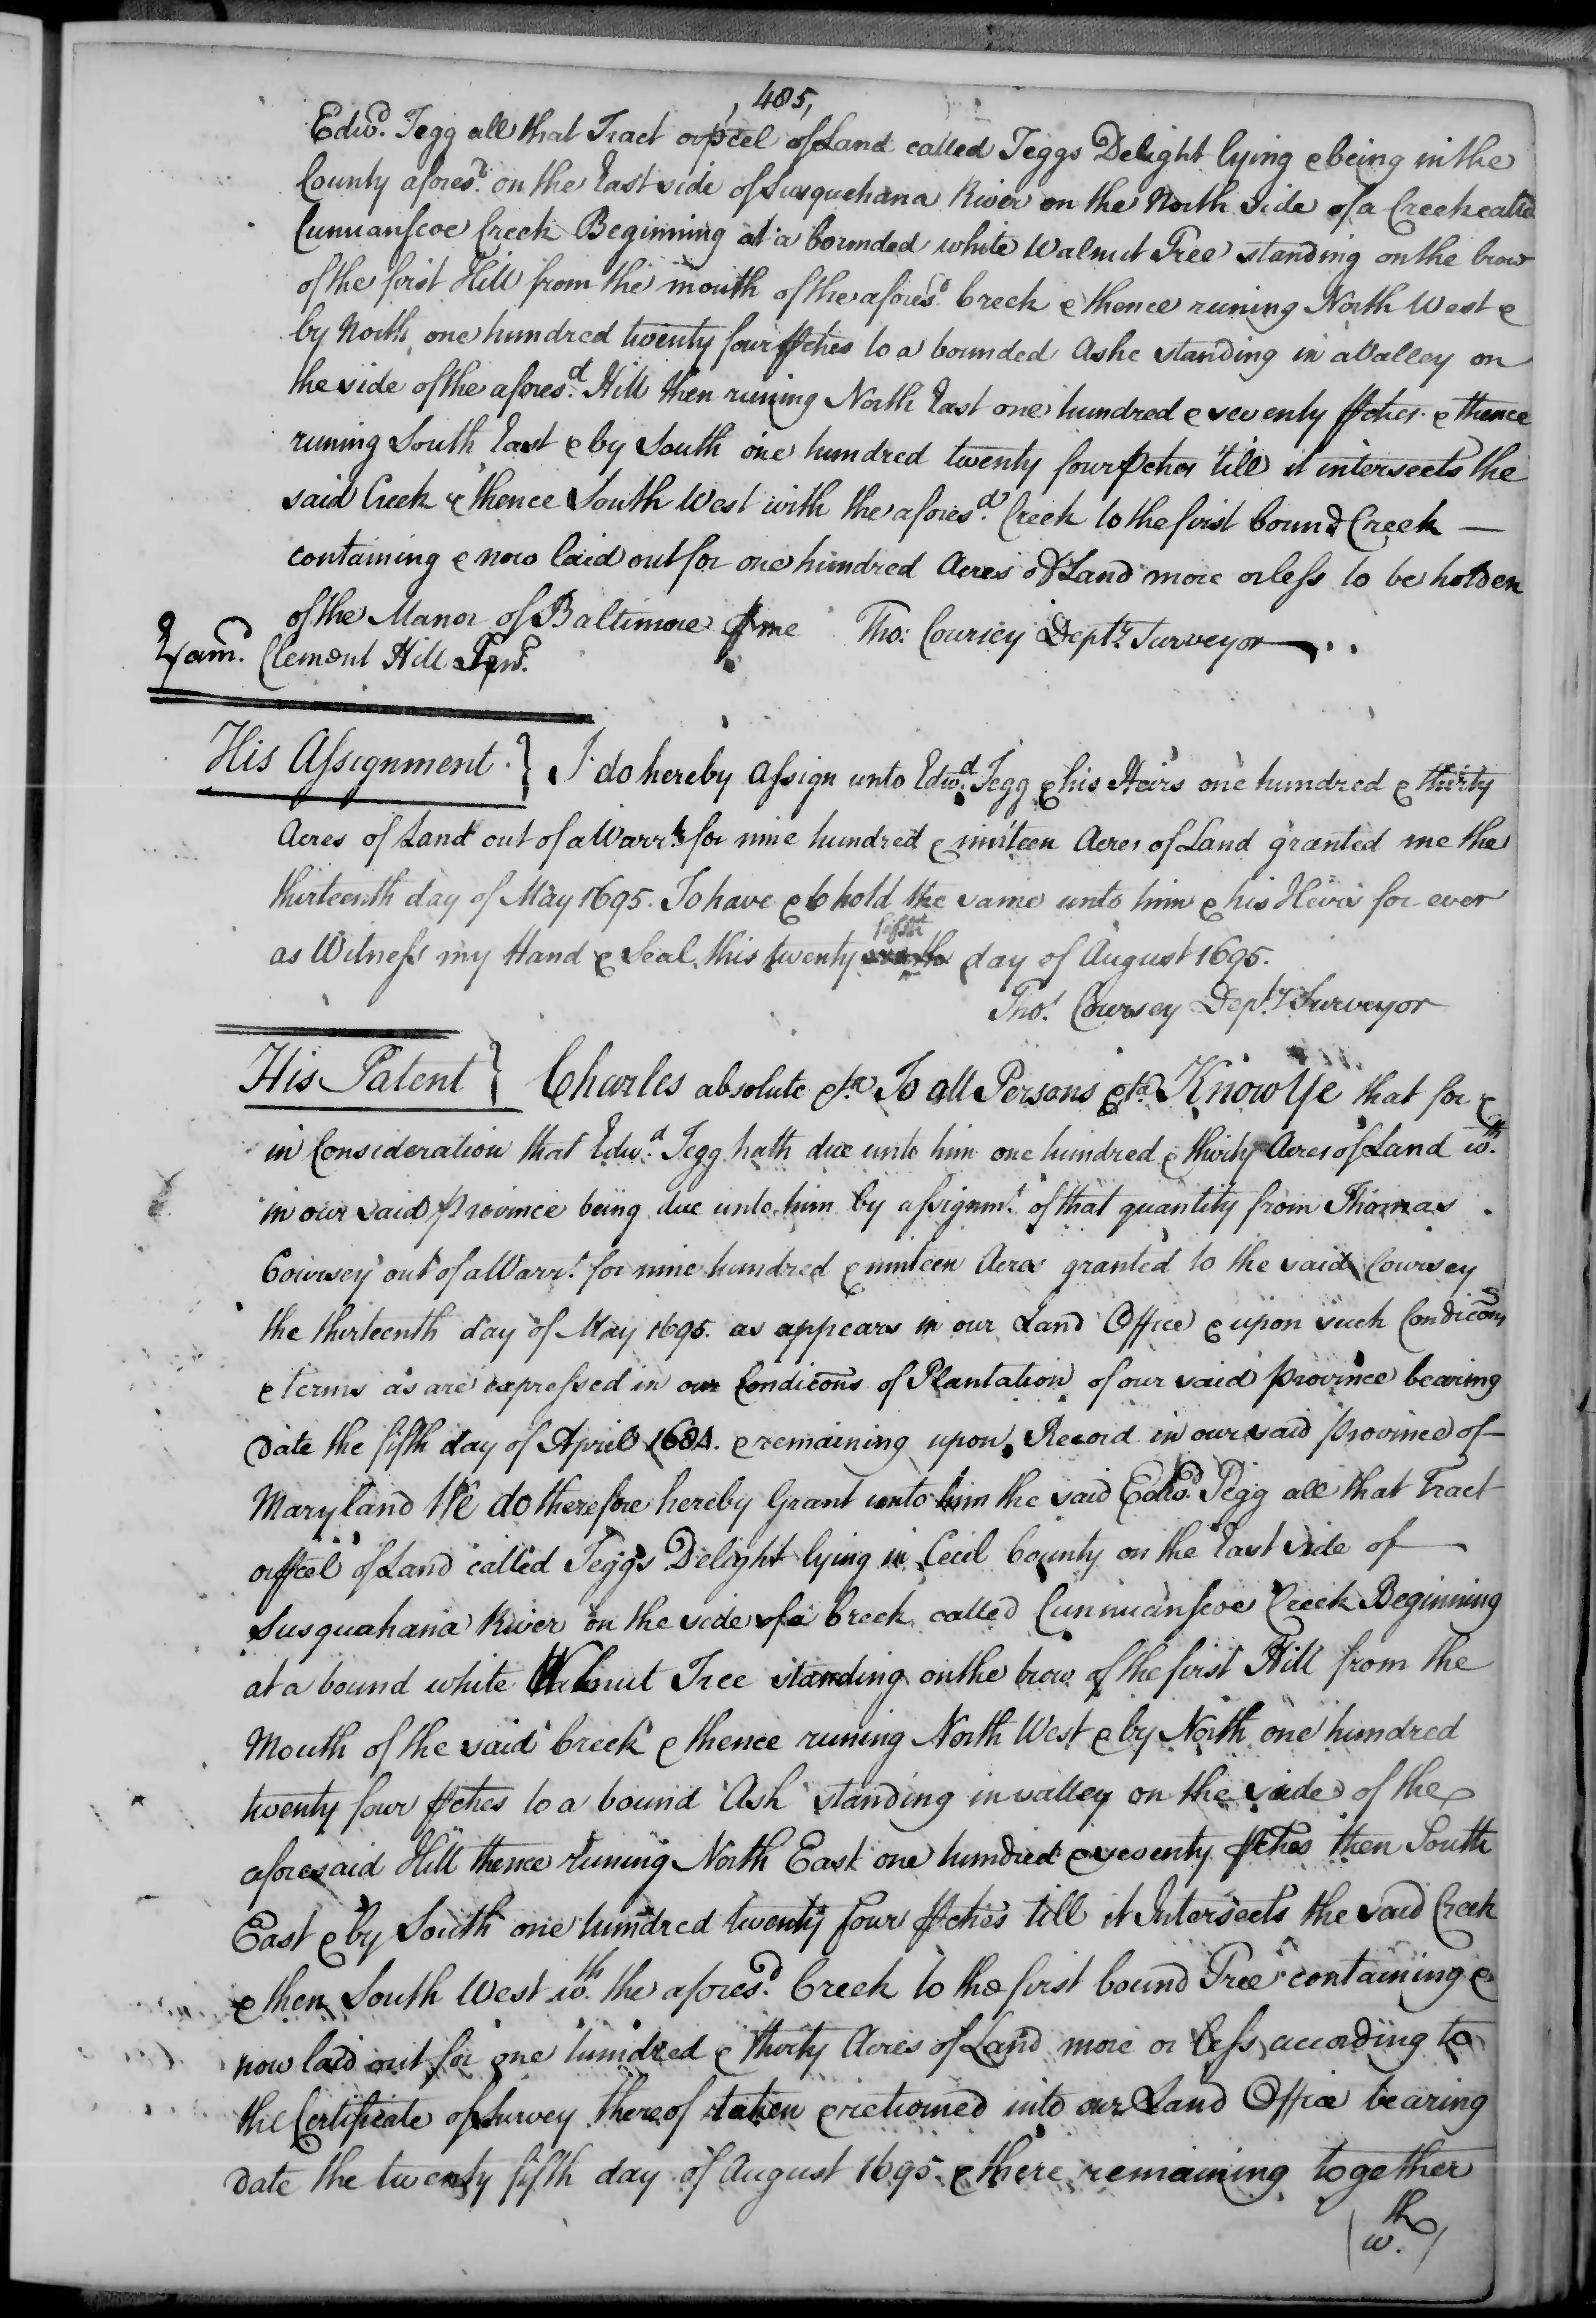 , 485,
Edwd. Tegg all that Tract or pcel of Land called Teggs Delight lying & being in the
County aforesd. on the East side of Susquehana River on the North Side of a Creek called
Cunnanscoe Creek Beginning at a bounded white Walnut Tree standing on the brow
of the first Hill from the mouth of the aforesd. Creek & thence runing North West &
by North one hundred twenty four pches to a bounded Ashe standing in a Valley on
the side of the aforesd. Hill then runing North East one hundred & seventy pches & thence
runing South East & by South one hundred twenty four pches till it intersects the
said Creek & thence South West with the aforesd. Creek to the first bound Creek —
containing & now laid out for one hundred Acres of Land more or less to be holden
of the Manor of Baltimore p me Tho: Coursey Depty. Surveyor
Exam. Clement Hill
His Assignment. } I do hereby assign unto Edwd. Tegg & his Heirs one hundred & thirty
Acres of Land out of a Warrt. for nine hundred & ninteen Acres of Land granted me the
thirteenth day of May 1695. To have & to hold the same unto him & his Heirs for ever
as Witness my Hand & Seal this twenty fifth day of August 1695.
Tho: Coursey Depty. Surveyor
His Patent } Charles absolute &ta. To all Persons &ta. Know Ye that for &
in Consideration that Edwd. Tegg hath due unto him one hundred & thirty Acres of Land wth.
in our said province being due unto him by assignmt. of that quantity from Thomas
Coursey out of a Warrt. for nine hundred & ninteen Acres granted to the said Coursey
the thirteenth day of May 1695. as appears in our Land Office & upon such Condicons
& terms as are expressed in our Condicons of Plantation of our said province bearing
Date the fifth day of April 1684. & remaining upon Record in our said province of
Maryland We do therefore hereby Grant unto him the said Edwd. Tegg all that Tract
or pcel of Land called Teggs Delight lying in Cecil County on the East side of
Susquahana River on the side of a Creek called Cunnuanscoe Creek Beginning
at a bound white Walnut Tree standing on the brow of the first Hill from the
Mouth of the said Creek & thence runing North West & by North one hundred
twenty four pches to a bound Ash standing in valley on the side of the
aforesaid Hill thence runing North East one hundred & seventy pches then South
East & by South one hundred twenty four pches till it Intersects the said Creek
& then South West wth. the aforesd. Creek to the first bound Tree containing &
now laid out for one hundred & thirty Acres of Land more or less according to
the Certificate of Survey thereof taken & returned into our Land Office bearing
Date the twenty fifth day of August 1695 & there remaining together
wth.